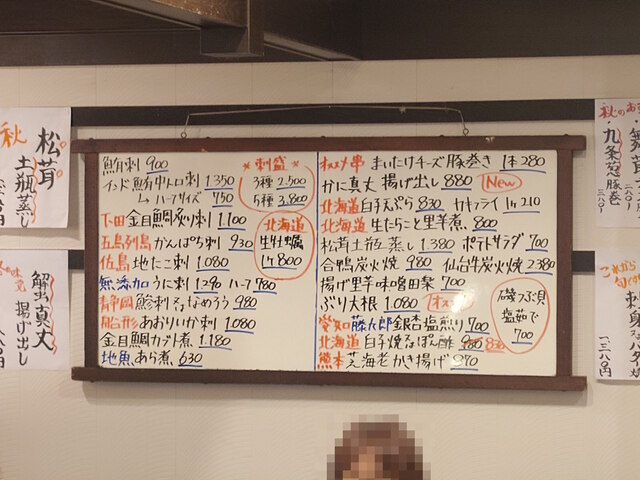 鮪刺 900
インド鮪中トロ刺 1.350
→ ハーフサイズ 750
下田 金目鯛炙り刺 1.100
五島列島 かんぱち刺 930
佐島 地たこ刺 1.080
無添加うに刺 1290 ハーフ 780
静岡 鯵刺 なめろう 980
船形 あおりいか刺 1.080
金目鯛カブト煮 1.180
地魚あら煮 630
*刺盛*
3種 2.500
5種 3.800
北海道
生牡蠣
1ヶ 800
オススメ串 まいたけチーズ豚巻き 1本 280
かに真丈 揚げ出し 880 New
北海道 白子天ぷら 830 カキフライ 1ヶ 210
北海道 生たらこと里芋煮 800
松茸土瓶蒸し 1380 ポテトサラダ 700
合鴨炭火焼 980 仙台牛炭火焼 2380
揚げ里芋味噌田楽 700
ぶり大根 1.080
愛知 藤九郎銀杏塩煎り 700
北海道 白子焼 ぽん酢 830
熊本 芝海老かき揚げ 870
磯つぶ貝
塩茹で
700
秋
松茸
土瓶蒸し
解虫真丈
揚げ出し
秋のお
九条葱豚巻
これから